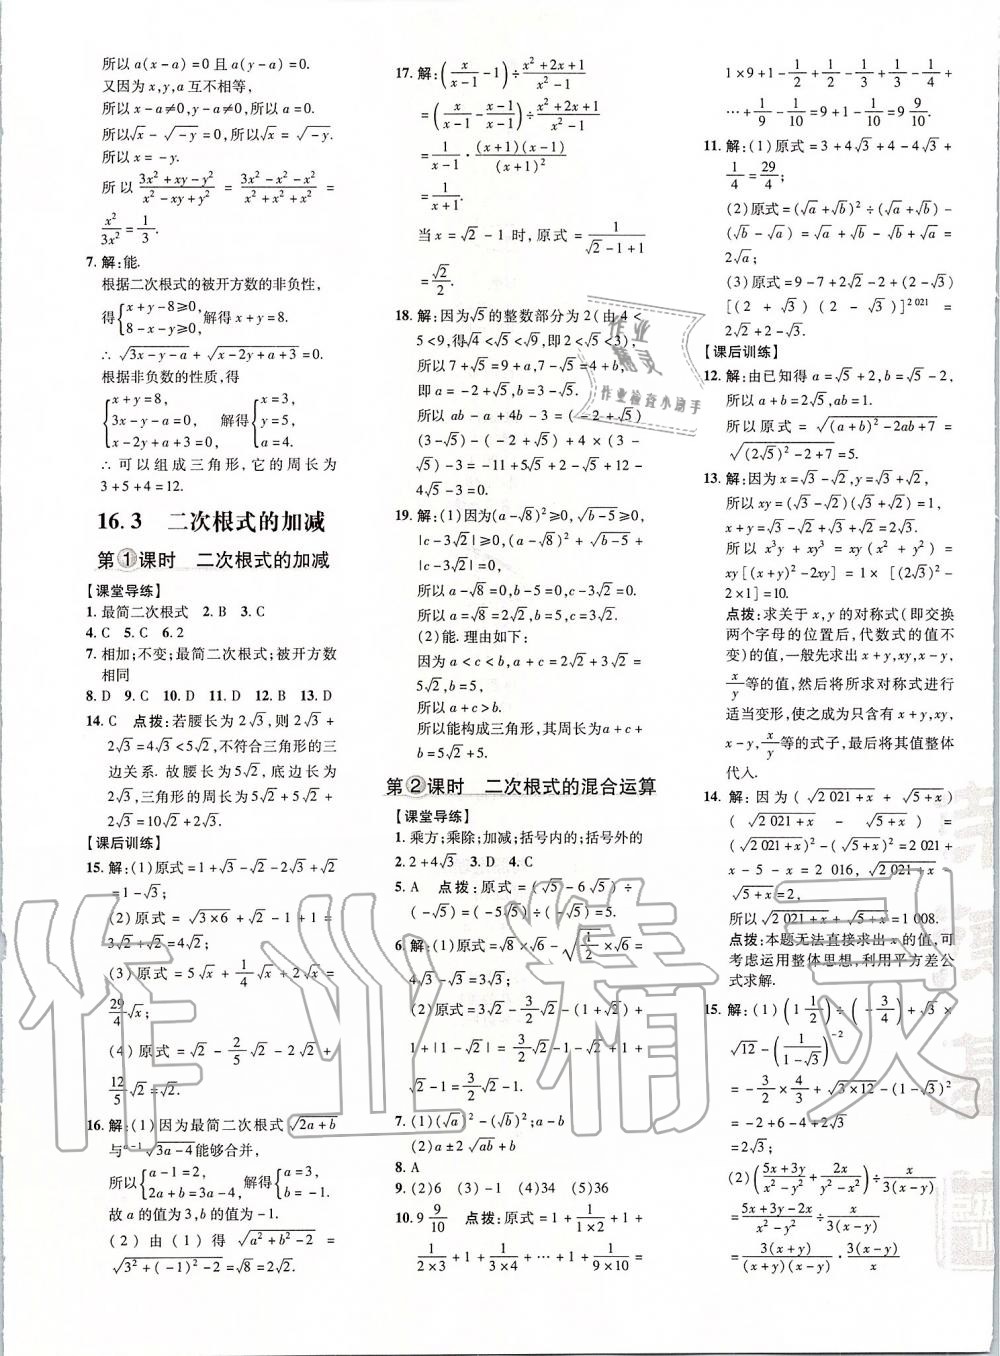 所以 a(x-a)=0 且 a(y-a)=0.
又因为 x,y,a 互不相等,
所以 x-a≠0,y-a≠0,所以 a=0.
所以√x-√(-y)=0,所以√x=√(-y).
所以 x=-y.
所以 (3x²+xy-y²)/(x²-xy+y²) = (3x²-x²-x²)/(x²+x²+x²) =
x²/3x² = 1/3.
7. 解:能.
根据二次根式的被开方数的非负性,
得{x+y-8≥0, 8-x-y≥0, 解得 x+y=8.
∴ √(3x-y-a)+√(x-2y+a+3)=0.
根据非负数的性质,得
{x+y=8, 3x-y-a=0, x-2y+a+3=0, 解得{x=3, y=5, a=4.
∴可以组成三角形,它的周长为
3+5+4=12.
16.3 二次根式的加减
第1课时 二次根式的加减
【课堂导练】
1. 最简二次根式 2. B 3. C
4. C 5. C 6. 2
7. 相加;不变;最简二次根式;被开方数
相同
8. D 9. C 10. D 11. D 12. B 13. D
14. C 点拨:若腰长为 2√3,则 2√3+
2√3=4√3<5√2,不符合三角形的三
边关系. 故腰长为 5√2,底边长为
2√3,等腰三角形的周长为 5√2+
5√2+2√3=10√2+2√3.
【课后训练】
15. 解:(1)原式=1+√3-2√3+√2
=1-√3;
(2)原式=√(3×6)+√2-1+1=
3√2+√2=4√2;
(3)原式=5√x+1/4√x+2√x=
29/4√x;
(4)原式=√2-2/5√2-2√2+
12/5√2=√2.
16. 解:(1)因为最简二次根式√(2a+b)
与ᵃ⁻¹√(3a-4)能够合并,
所以{a-1=2, 2a+b=3a-4, 解得{a=3, b=-1.
故 a 的值为 3,b 的值为-1.
(2)由(1)得√(a²+b²-2)=
√(3²+(-1)²-2)=√8=2√2.
17. 解:(x/(x-1)-1)÷(x²+2x+1)/(x²-1)
=(x/(x-1)-(x-1)/(x-1))÷(x²+2x+1)/(x²-1)
=1/(x-1)·(x+1)(x-1)/(x+1)²
=1/(x+1).
当 x=√2-1 时,原式=1/(√2-1+1)
=√2/2.
18. 解:因为√5的整数部分为 2(由 4<
5<9,得√4<√5<√9,即2<√5<3),
所以 7+√5=9+a,7-√5=b,
即 a=-2+√5,b=3-√5.
所以 ab-a+4b-3=(-2+√5)
(3-√5)-(-2+√5)+4×(3-
√5)-3=-11+5√5+2-√5+12-
4√5-3=0.
19. 解:(1)因为(a-√8)²≥0,√(b-5)≥0,
|c-3√2|≥0,(a-√8)²+√(b-5)+
|c-3√2|=0,
所以 a-√8=0,b-5=0,c-3√2=0.
所以 a=√8=2√2,b=5,c=3√2.
(2)能. 理由如下:
因为 a<c<b,a+c=2√2+3√2=
5√2>5,
所以 a+c>b.
所以能构成三角形,其周长为 a+c+
b=5√2+5.
第2课时 二次根式的混合运算
【课堂导练】
1. 乘方;乘除;加减;括号内的;括号外的
2. 2+4√3 3. D 4. C
5. A 点拨:原式=(√5-6√5)÷
(-√5)=(-5√5)÷(-√5)=5.
6. 解:(1)原式=√8×√6-√(1/2)×√6=
4√3-√3=3√3;
(2)原式=3√2-3/2√2-(1+√2)+
1+|1-√2|=3√2-3/2√2-1-√2+1+
√2-1=3/2√2-1.
7. (1)(√a)²-(√b)²;a-b
(2)a±2√ab+b
8. A
9. (2)6 (3)-1 (4)34 (5)36
10. 9 9/10 点拨:原式=1+1/(1×2)+1+
1/(2×3)+1+1/(3×4)+…+1+1/(9×10)=
1×9+1-1/2+1/2-1/3+1/3-1/4+
…+1/9-1/10=9+1-1/10=9 9/10.
11. 解:(1)原式=3+4√3+4-4√3+
1/4=29/4;
(2)原式=(√a+√b)²÷(√a+√b)-
(√b-√a)=√a+√b-√b+√a=
2√a;
(3)原式=9-7+2√2+(2-√3)
[(2+√3)(2-√3)]²⁰²¹=
2+2√2+2-√3=4+2√2-√3.
【课后训练】
12. 解:由已知得 a=√5+2,b=√5-2,
所以 a+b=2√5,ab=1.
所以原式=√((a+b)²-2ab+7)=
√((2√5)²-2+7)=5.
13. 解:因为 x=√3-√2,y=√3+√2,
所以 xy=(√3-√2)(√3+√2)=1,
x+y=√3-√2+√3+√2=2√3.
所以 x³y+xy³=xy(x²+y²)=
xy[(x+y)²-2xy]=1×[(2√3)²-
2×1]=10.
点拨:求关于 x,y 的对称式(即交换
两个字母的位置后,代数式的值不
变)的值,一般先求出 x+y,xy,x-y,
x/y等的值,然后将所求对称式进行
适当变形,使之成为只含有 x+y,xy,
x-y,x/y等的式子,最后将其值整体
代入.
14. 解:因为(√(2 021+x)+√(5+x))
(√(2 021+x)-√(5+x))=
(√(2 021+x))²-(√(5+x))²=2 021+
x-5-x=2 016,√(2 021+x)-
√(5+x)=2,
所以√(2 021+x)+√(5+x)=1 008.
点拨:本题无法直接求出 x 的值,可
考虑运用整体思想,利用平方差公
式求解.
15. 解:(1)(1 1/2)÷(-3/4)+√3×
√12-(1/(1-√3))⁻²
=-3/2×4/3+√(3×12)-(1-√3)²
=-2+6-4+2√3
=2√3;
(2)((5x+3y)/(x²-y²)-2x/(x²-y²))÷x/(3(x-y))
=(5x+3y-2x)/(x²-y²)·3(x-y)/x
=3(x+y)/((x+y)(x-y))·3(x-y)/x
作业精灵
作业检查小助手
作业精灵